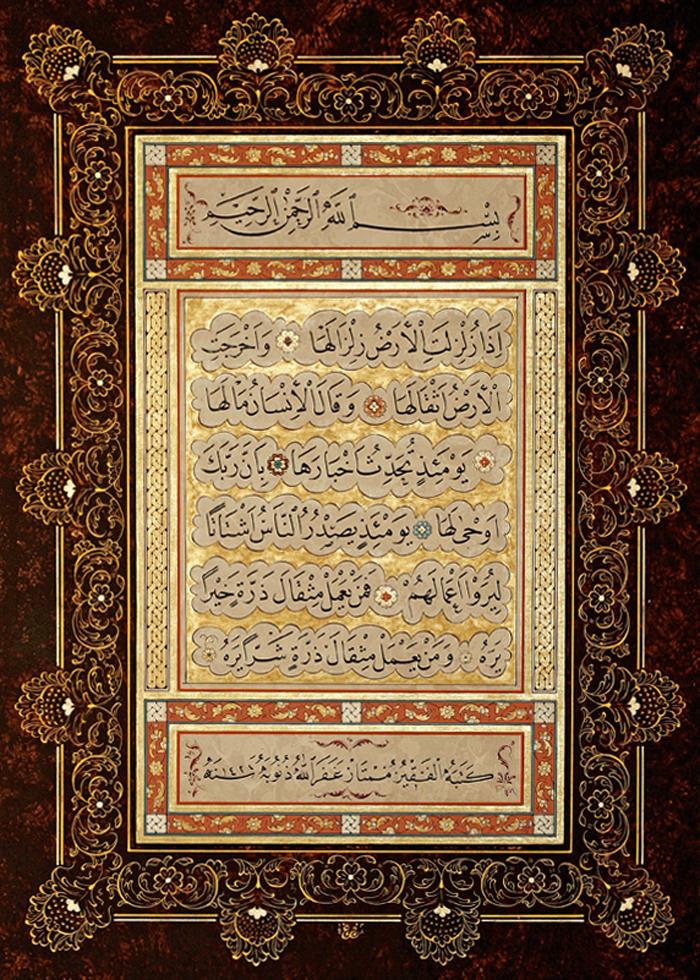 بِسْمِ ٱللَّهِ ٱلرَّحْمٰنِ ٱلرَّحِيمِ
إِذَا زُلْزِلَتِ الْأَرْضُ زِلْزَالَهَا وَأَخْرَجَتِ
الْأَرْضُ أَثْقَالَهَا وَقَالَ الْإِنْسَانُ مَا لَهَا
يَوْمَئِذٍ تُحَدِّثُ أَخْبَارَهَا بِأَنَّ رَبَّكَ
أَوْحَى لَهَا يَوْمَئِذٍ يَصْدُرُ النَّاسُ أَشْتَاتًا
لِيُرَوْا أَعْمَالَهُمْ فَمَنْ يَعْمَلْ مِثْقَالَ ذَرَّةٍ خَيْرًا
يَرَهُ وَمَنْ يَعْمَلْ مِثْقَالَ ذَرَّةٍ شَرًّا يَرَهُ
كَتَبَهُ الْفَقِيرُ مُمْتَاز غَفَرَ اللّٰهُ ذُنُوبَهُ سَنَة